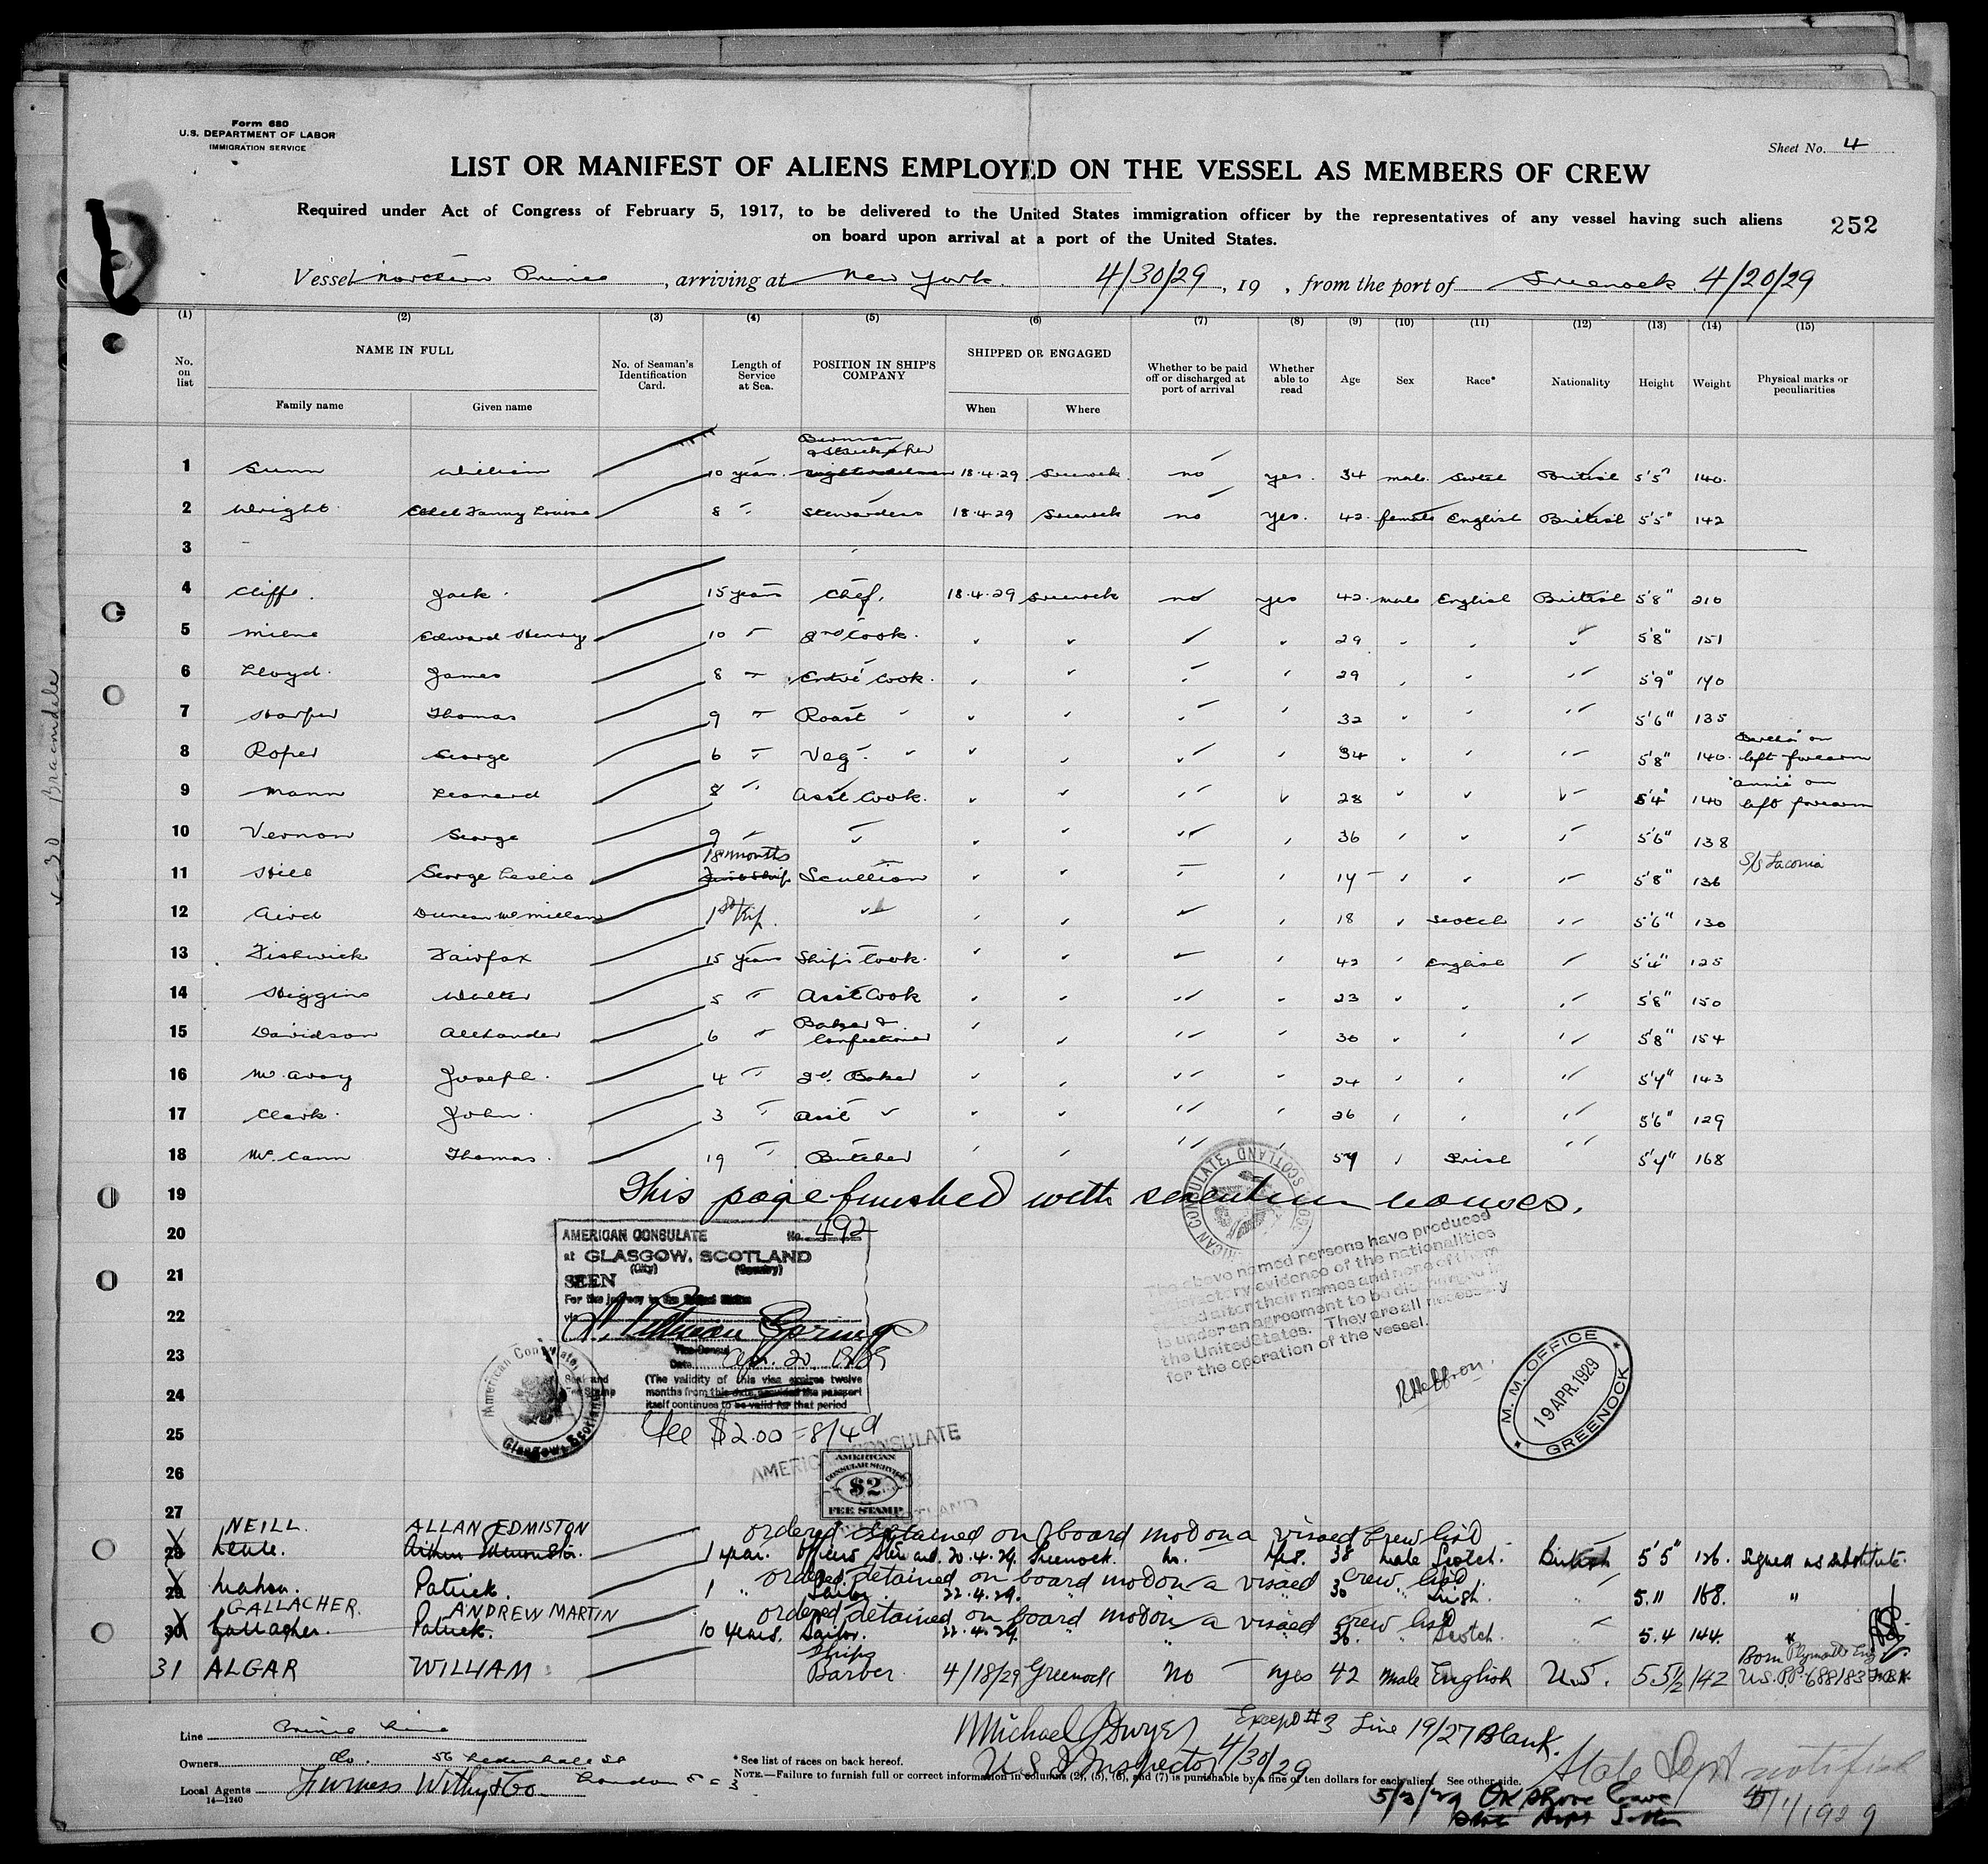 Form 680
U.S. DEPARTMENT OF LABOR
IMMIGRATION SERVICE
Sheet No. 4
LIST OR MANIFEST OF ALIENS EMPLOYED ON THE VESSEL AS MEMBERS OF CREW
Required under Act of Congress of February 5, 1917, to be delivered to the United States immigration officer by the representatives of any vessel having such aliens
on board upon arrival at a port of the United States.
252
Vessel Northern Prince, arriving at New York. 4/30/29, 19 , from the port of Greenock. 4/20/29
(1) (2) (3) (4) (5) (6) (7) (8) (9) (10) (11) (12) (13) (14) (15)
No. on list NAME IN FULL Family name Given name No. of Seaman's Identification Card. Length of Service at Sea. POSITION IN SHIP'S COMPANY SHIPPED OR ENGAGED When Where Whether to be paid off or discharged at port of arrival Whether able to read Age Sex Race* Nationality Height Weight Physical marks or peculiarities
1 Gunn William 10 years. 18.4.29 Greenock no yes. 34 male Scotch British 5'5" 140.
2 Wright Ethel Fanny Louise 8 " Stewardess 18.4.29 Greenock no yes. 42. female English British 5'5" 142
3
4 Cliffe. Jack. 15 years Chef. 18.4.29 Greenock no yes 42. male English British 5'8" 210
5 Milne Edward Henry 10 " 2nd Cook. " " " " 29 " " " 5'8" 151
6 Lloyd. James 8 " Entré Cook. " " " " 29 " " " 5'9" 140
7 Harper Thomas 9 " Roast " " " " " 32 " " " 5'6" 135
8 Roper George 6 " Veg. " " " " " 34 " " " 5'8" 140. left forearm
9 Mann Leonard 8 " Asst Cook. " " " " 28 " " " 5'4" 140 "Annie" on left forearm
10 Vernon George 9 " " " " " " 36 " " " 5'6" 138
11 Hill George Leslie 18 months Scullion " " " " 19 " " " 5'8" 136 S/S Laconia
12 Aird Duncan McMillan 1st Trip. " " " " " 18 " Scotch " 5'6" 130
13 Fishwick Fairfax 15 years Ship's Cook. " " " " 42 " English " 5'4" 125
14 Higgins Walter 5 " Asst Cook " " " " 23 " " " 5'8" 150
15 Davidson Alexander 6 " Baker & Confectioner " " " " 30 " " " 5'8" 154
16 McAvoy Joseph. 4 " 2d. Baker " " " " 24 " " " 5'4" 143
17 Clark. John. 3 " Asst " " " " " 26 " " " 5'6" 129
18 McCann Thomas. 19 " Butcher " " " " 54 " Irish " 5'4" 168
19 This page finished with seventeen names.
20
21
22
23
24
25
26
27
AMERICAN CONSULATE No. 492
at GLASGOW, SCOTLAND
(City) (Country)
SEEN
For the journey to the United States
via
Vice Consul
Date Apr. 20, 1929
Seal and Fee Stamp
(The validity of this visa expires twelve
months from this date, provided the passport
itself continues to be valid for that period
American Consulate, Glasgow, Scotland
Fee $2.00 = 8/4d
AMERICAN CONSULATE
AMERICAN
CONSULAR SERVICE
$2
FEE STAMP
AMERICAN CONSULATE, GLASGOW, SCOTLAND
The above named persons have produced
satisfactory evidence of the nationalities
stated after their names and none of them
is under an agreement to be discharged in
the United States. They are all necessary
for the operation of the vessel.
M. M. OFFICE
19 APR. 1929
GREENOCK
NEILL. ALLAN EDMISTON ordered detained on board mod on a visaed crew list
28 1 year. Officers Steward. 20.4.29. Greenock. no. Yes. 38 Male Scotch. British 5'5" 126. Signed as substitute.
ordered detained on board mod on a visaed crew list
29 Mahon. Patrick. 1 " 22.4.29. " " 30 " Irish. " 5.11 168. "
GALLACHER. ANDREW MARTIN ordered detained on board mod on a visaed crew list
30 Gallagher. Patrick. 10 years. Sailor. 22.4.29. " " 36. " Scotch. " 5.4 144. "
31 ALGAR WILLIAM Ships Barber 4/18/29 Greenock No yes 42 Male English U.S. 5 5½ 142 Born Plymouth Eng U.S. P.P. 688183
Line Prince Line
Owners do. 56 Leadenhall St London E C 3
Local Agents Furness Withy & Co
14—1240
* See list of races on back hereof.
NOTE.—Failure to furnish full or correct information in columns (2), (5), (6), and (7) is punishable by a fine of ten dollars for each alien. See other side.
Michael J Dwyer
U S I Inspector 4/30/29
Except #3 Line 19/27 Blank.
State Dept notified
5/1/1929
5/3/29 OK Shore Leave